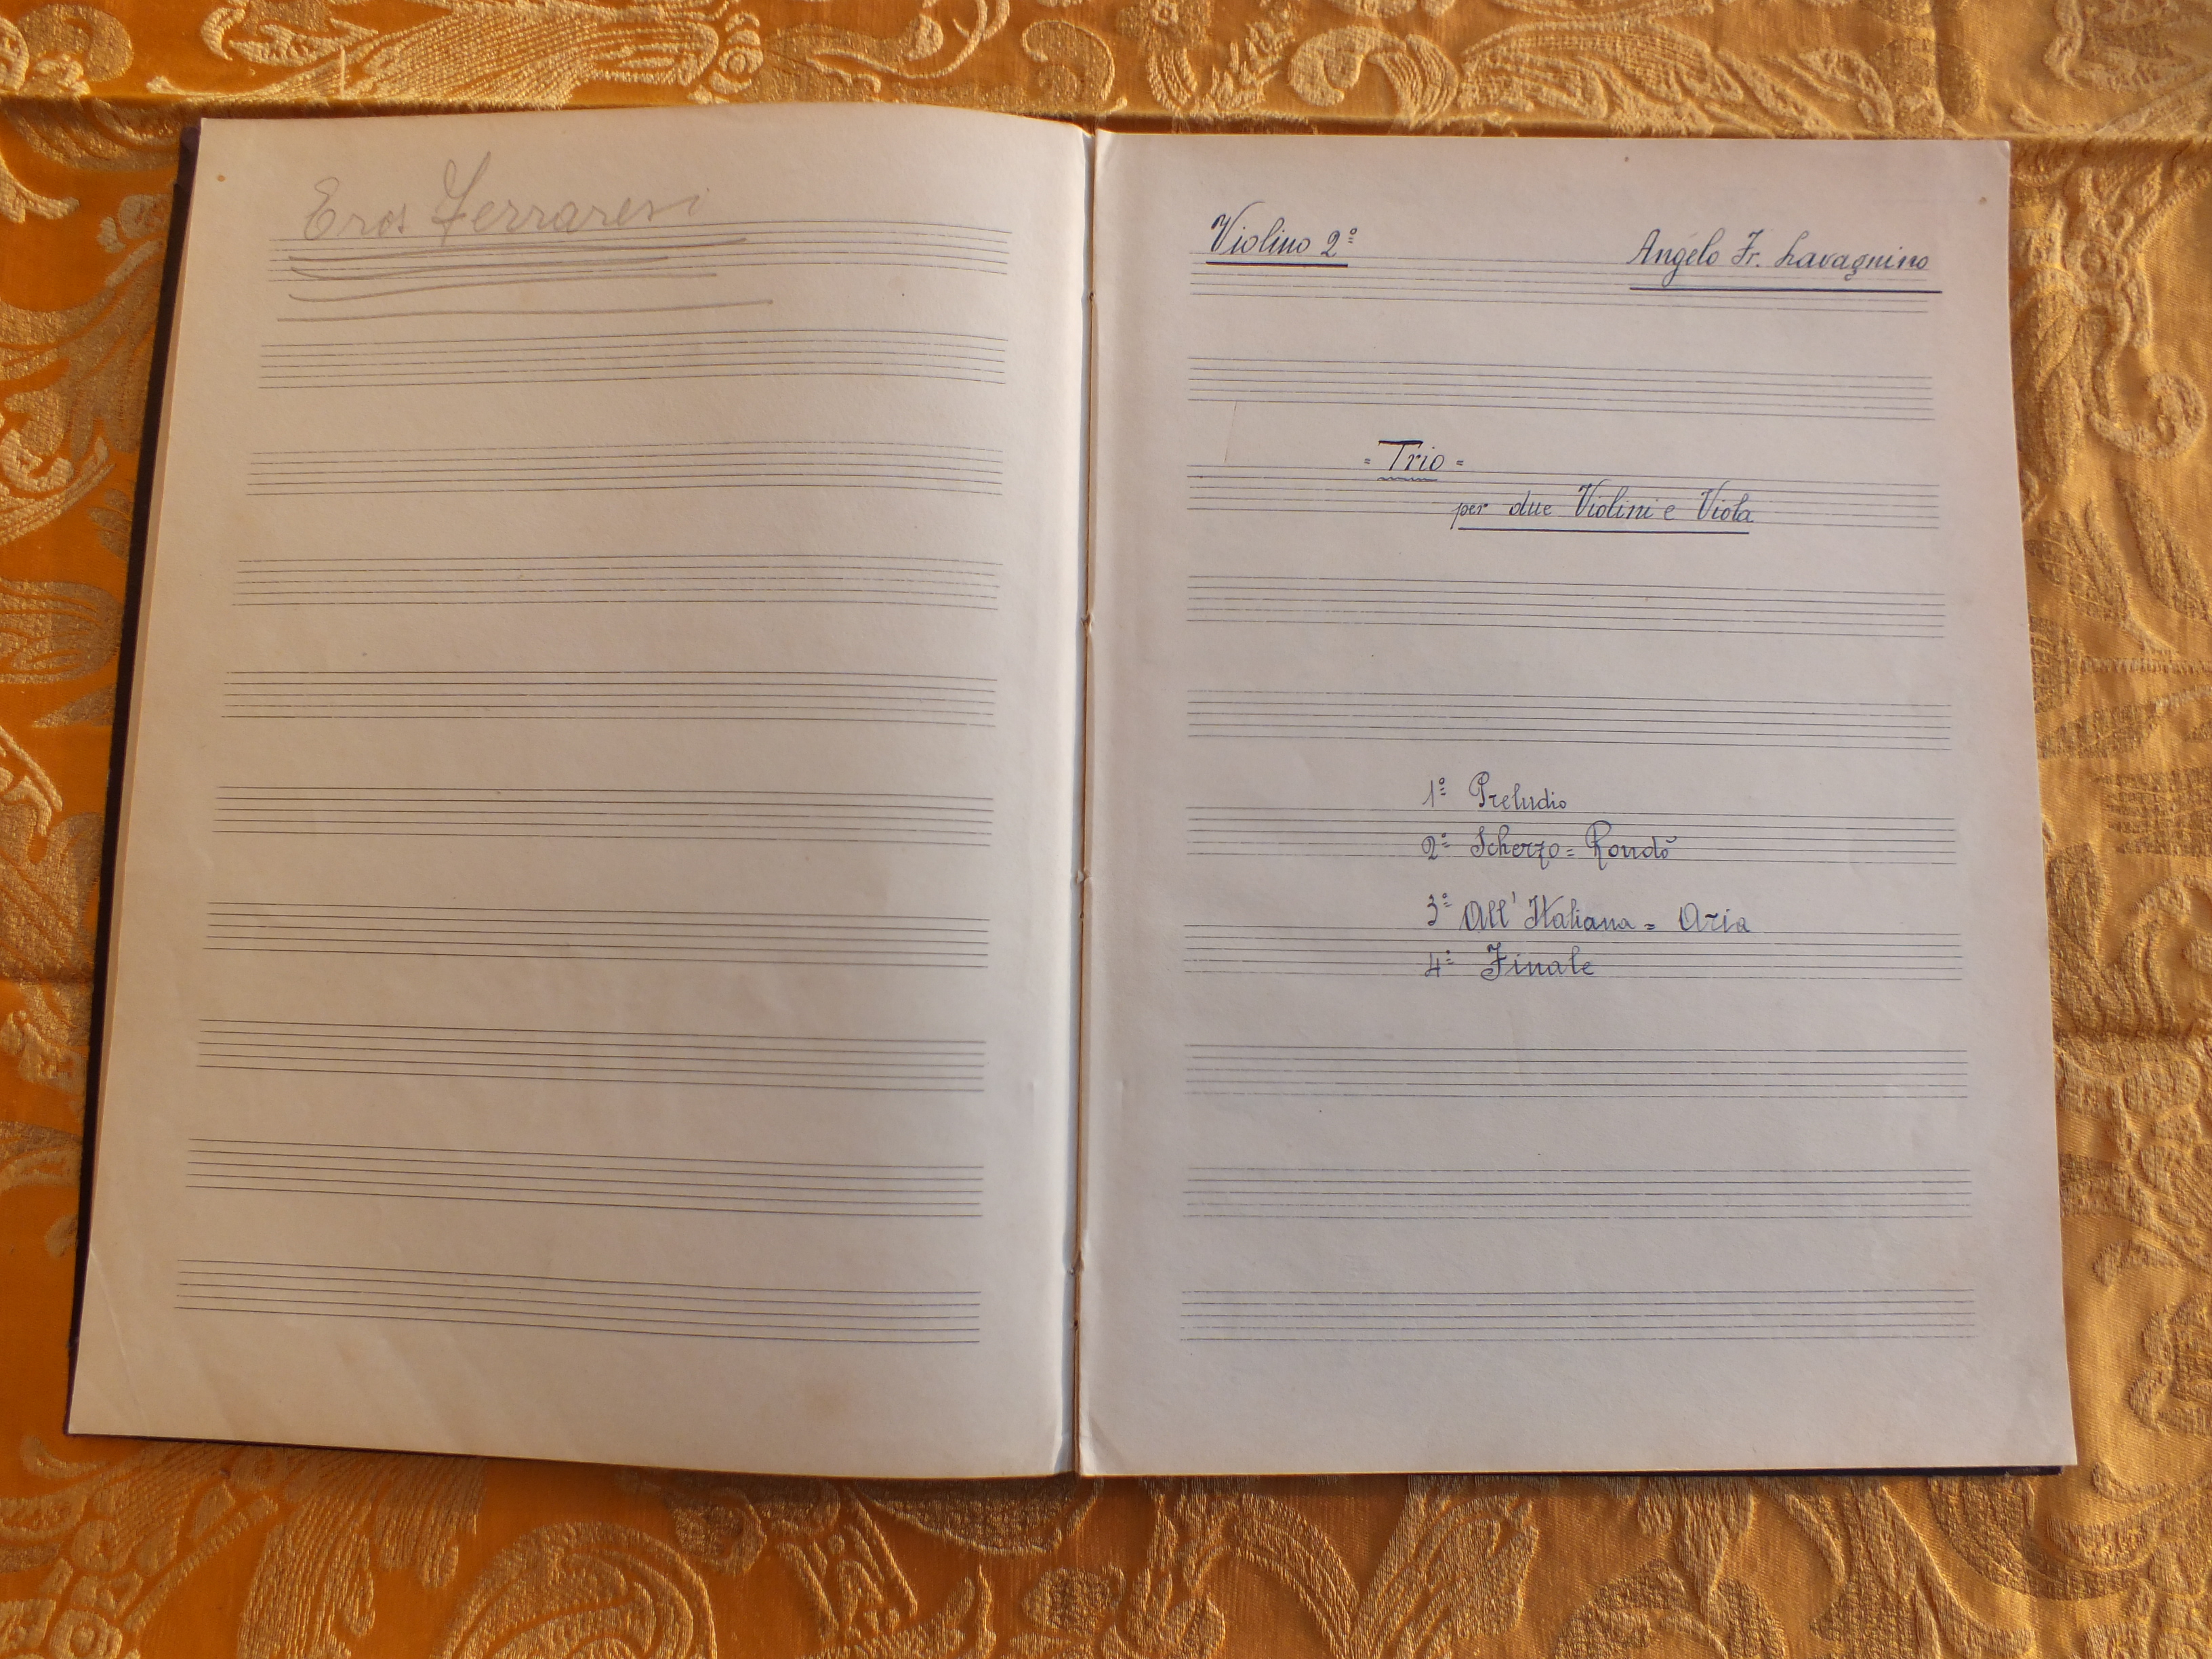 Eros Ferraresi
Violino 2º
Angelo Fr. Lavagnino
= Trio =
per due Violini e Viola
1º Preludio
2º Scherzo = Rondò
3º All' Italiana = Aria
4º Finale